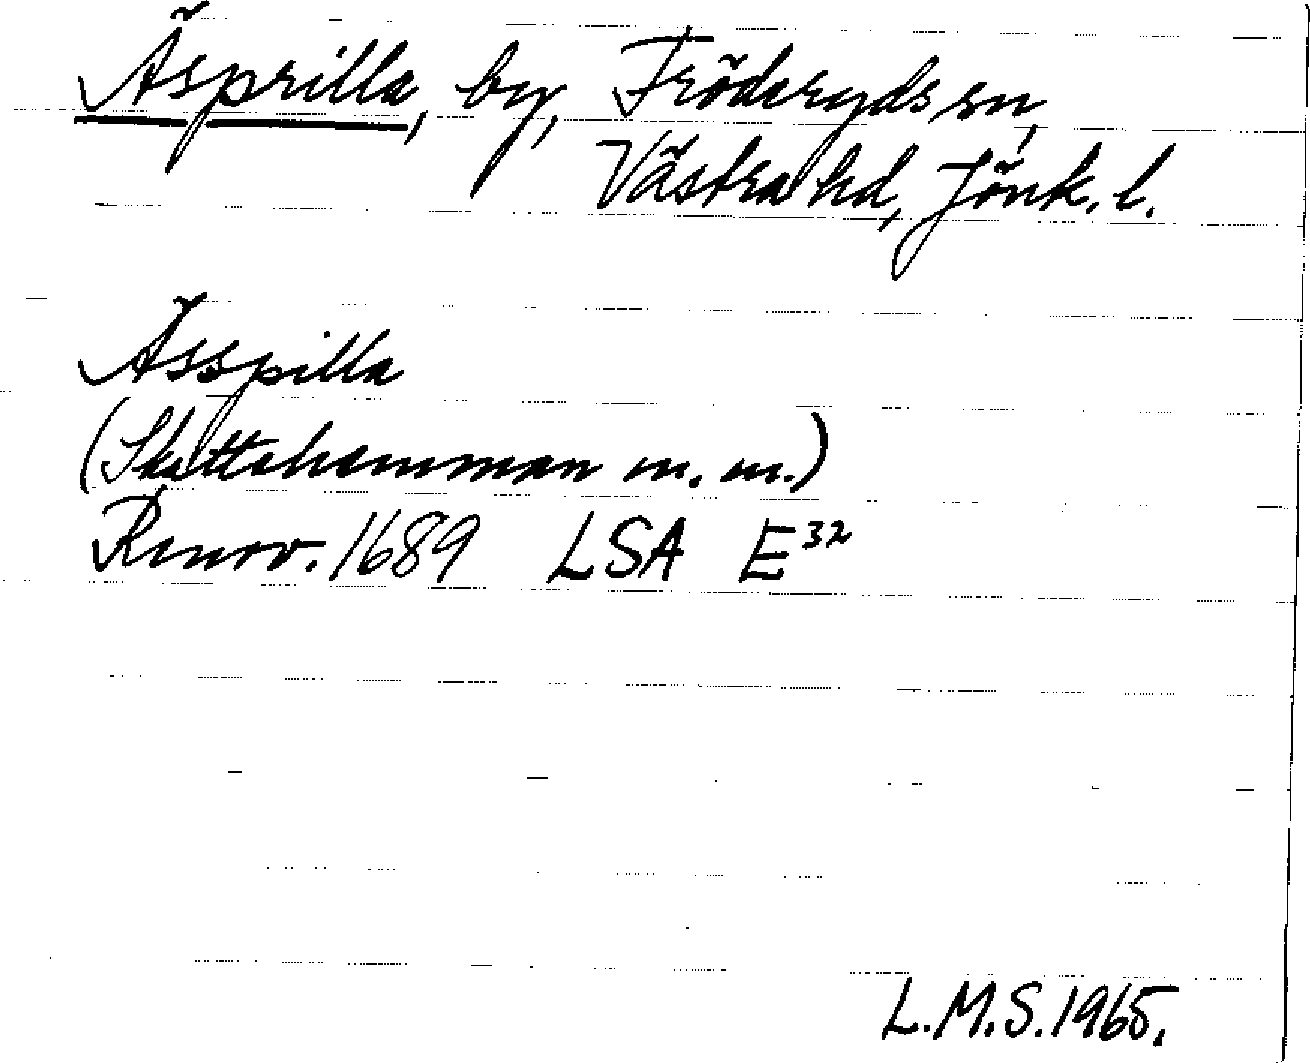 Äsprilla, by, Fröderyds sn,
Västra hd, Jönk. l.
Ässpilla
(Skattehemman m. m.)
Renov. 1689 LSA E32
L.M.S. 1965.